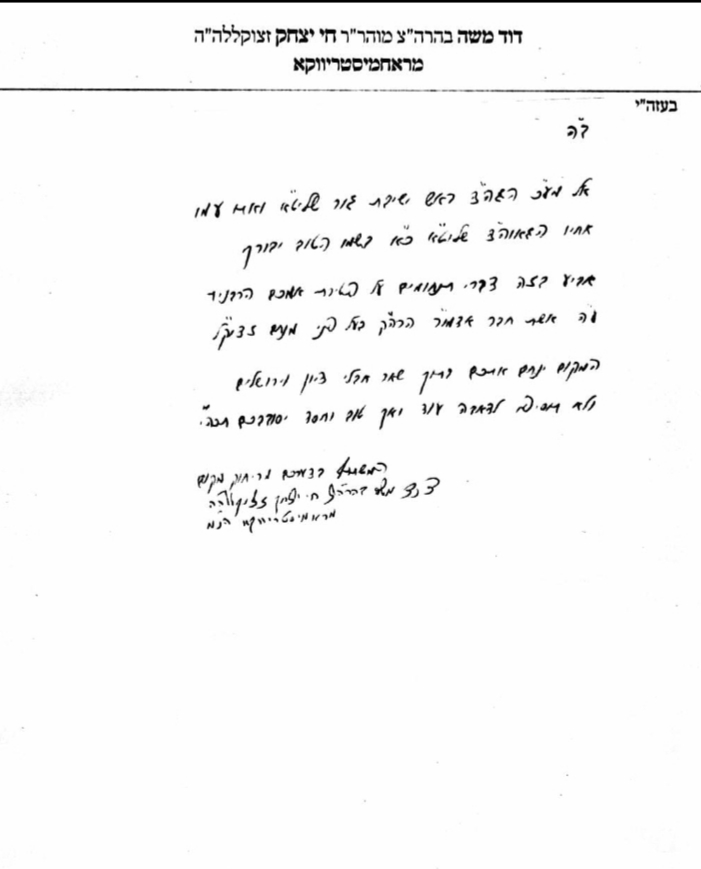 דוד משה בהרה"צ מוהר"ר חי יצחק זצוקללה"ה
מראחמיסטריווקא
בעזה"י
ב"ה
אל מע"כ הגה"צ ראש ישיבת גור שליט"א ואתו עמו
אחיו הגאוה"צ שליט"א כ"א בשמו הטוב יבורך
אביע בזה דברי תנחומים על פטירת אמכם הרבנית
ע"ה אשת חבר אדמו"ר הרה"ק בעל פני מנחם זצוק"ל
המקום ינחם אתכם בתוך שאר אבלי ציון וירושלים
ולא תוסיפו לדאבה עוד ואך טוב וחסד יסובבכם תכה"י
המשתתף בצערכם מריחוק מקום
דוד משה בהרה"צ חי יצחק זצוקללה"ה
מראחמיסטריווקא